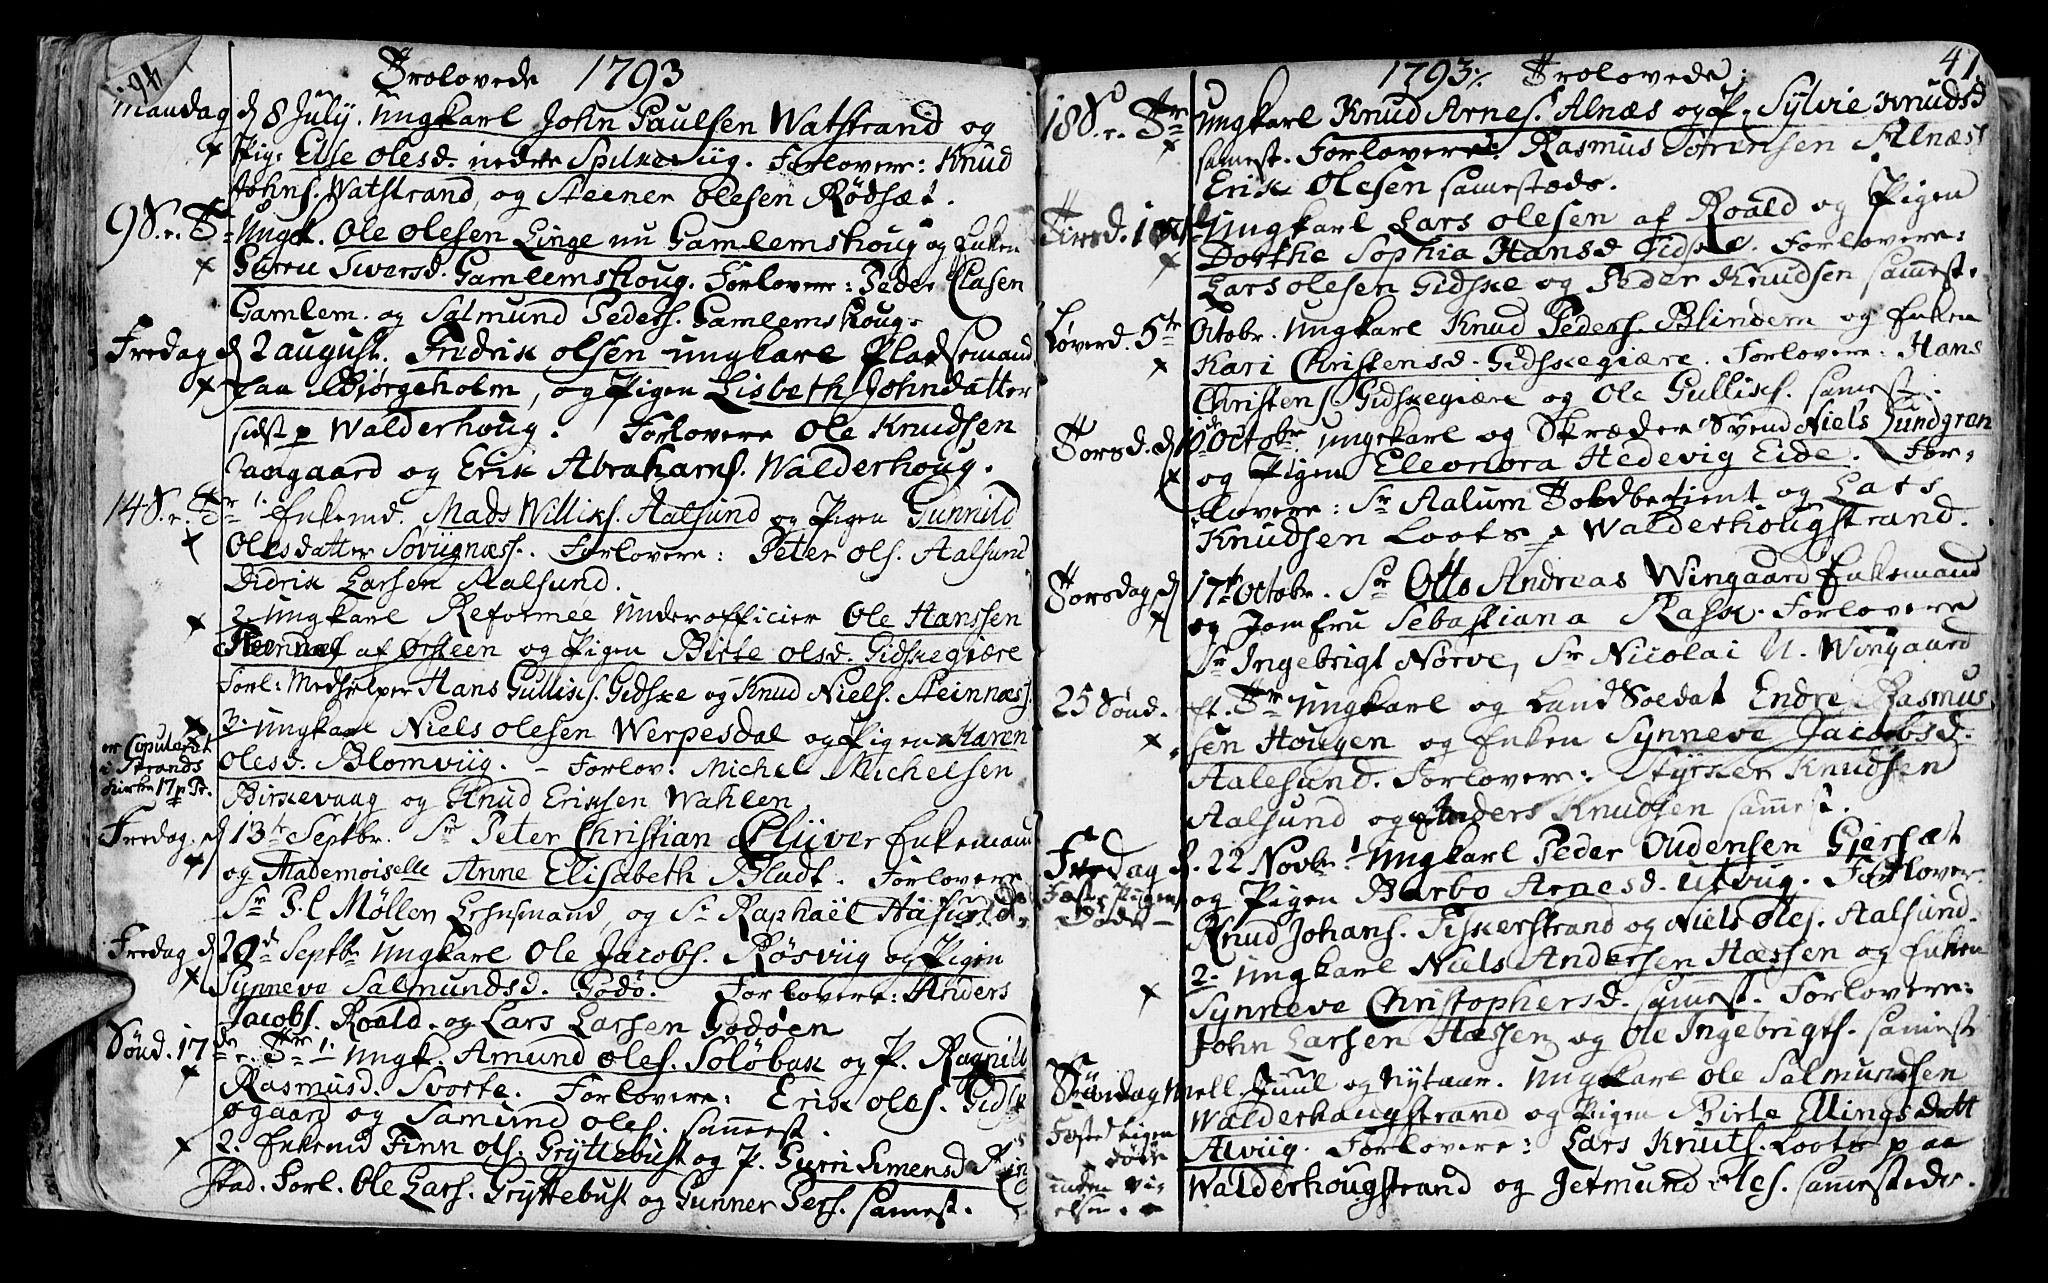 Trolovede 1793
Mandag d 8 July. Ungkarl John Paulsen Watstrand og
Pig: Else Olesd. nedre Spilkeviig. Forlovere: Knud
Johns. Watstrand, og Steener Olesen Rødsæt.
9 S. e. T. Ungk. Ole Olesen Linge nu Gamlemshoug og Enken
Guru Siversd. Gamlemshoug. Forlovere: Peder Clasen
Gamlem. og Salmund Peders. Gamlemshoug.
Fredag d 2 august. Fridrik Olsen ungkarl Pladsemand
paa Biørgeholm, og Pigen Lisbeth Johndatter
sidst p Walderhoug. Forlovere Ole Knudsen
Aaagaard og Erik Abrahams. Walderhoug.
14 S. e. Tr 1. Enkemd. Mads Williks. Aalsund og Pigen Gunnild
Olesdatter Soviignæss. Forlovere: Peter Ols. Aalsund
Didrik Larsen Aalsund.
2. Ungkarl Reformee Underofficier Ole Hanssen
Steinnæs af Ørsteen og Pigen Birte Olsd. Gidskegiære
Forl: Medhielper Hans Gulliks. Gidske og Knud Niels. Steinnæss.
3. Ungkarl Niels Olesen Werpesdal og Pigen Karen
er Copuleret
i Strands
Kirke 17 p Tr.
Olesd. Blomviig. – Forlov: Michel Michelsen
Birkevaag og Knud Eriksen Wahlen
Fredag. d 13te Septbr. Sr Peter Christian Clüver Enkemand
og Mademoiselle Anne Elisabeth Bludt. Forlovere
Sr P. C Møller Lehnsmand, og Sr Raphaël Aasund
Fredag d 20d Septbr Ungkarl Ole Jacobs. Røsviig og Pigen
Synneve Salmundsd. Godø. Forlovere: Anders
Jacobs. Roald. og Lars Larsen Godøen
Sønd. 17de e. Tr 1. Ungk. Amund Oles. Soløbak og P. Ragnild
Rasmusd. Svorte. Forlovere: Erik Oles. Gidsk
øgaard og Samund Oles. samest.
2. Enkemd Finn Ols. Gryttebust og P. Gurri Simensd Rein
stad. Forl. Ole Lars. Gryttebust og Gunner Pers. samest.
1793. Trolovede: 41.
18 S. e. Tr Ungkarl Knud Arnes. Alnæs og P. Sylvie Knudsd
samest. Forlovere: Rasmus Sørensen Alnæs
Erik Olesen samestæds.
Tirsd. 1 Ungkarl Lars Olesen af Roald og Pigen
Dorthe Sophia Hansd Gidske. Forlovere:
Lars Olesen Gidske og Peder Knudsen samest.
Løverd. 5te Octobr. Ungkarl Knud Peders. Blindem og Enken
Kari Christensd. Gidskegiære. Forlovere: Hans
Christens. Gidskegiære og Ole Gulliks. samest.
Torsd. d 10 Octobr Ungkarl og Skræder Svend Niels Lundgren
og Pigen Eleonora Hedevig Eide. For-
lovere: Sr Aalum Toldbetient og Lars
Knudsen Loots p Walderhougstrand.
Torsdag d 17te Octobr. Sr Otto Andreas Wingaard Enkemand
og Jomfru Sebastiana Rask. Forlovere
Sr Ingebrigt Nørve, Sr Nicolai U. Wingaard
25 Sønd. ef. Tr Ungkarl og Land Soldat Endre Rasmus
sen Hougen og Enken Synneve Jacobsd.
Aalesund. Forlovere: Styrker Knudsen
Aalsund og Anders Knudsen samest.
Fredag d. 22 Novbr 1 Ungkarl Peder Oudensen Giersæt
Fæste Pigen
Døde –
og Pigen Barbo Arnesd. Utvug. Forlover.
Knud Johans. Fiskerstrand og Niels Oles. Aalsund.
2. Ungkarl Niels Andersen Hæssen og Enken
Synneve Christophersd. samest. Forlovere:
John Larsen Hæssen og Ole Ingebrigts. samest
Søndag Mell. Juul og Nytaar. Ungkarl Ole Salmundsen
Walderhaugstrand og Pigen Birte Ellingsdatt
Fæsted Pigen
døde
inden vi-
elsen.
Alviig. Forlovere: Lars Knuts. Loots p aa
Walderhougstrand og Jetmund Oles. samesteds.